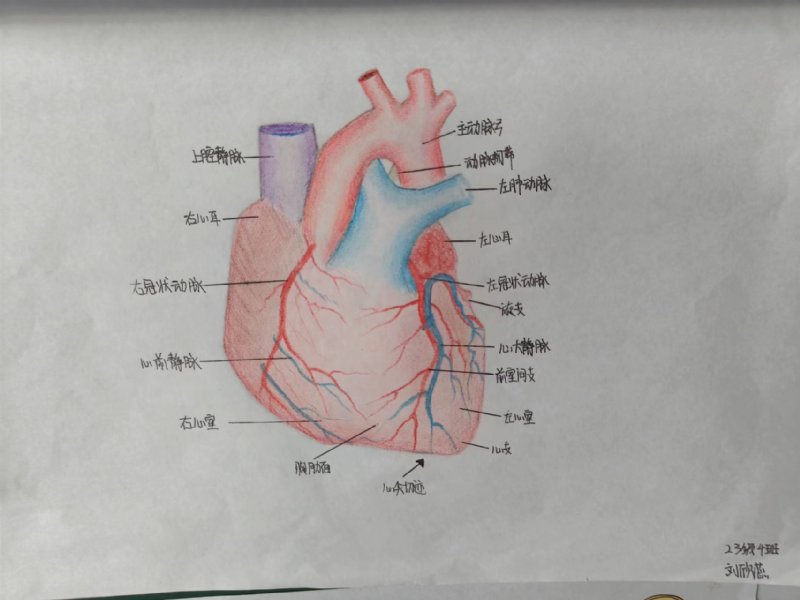 上腔静脉
右心耳
右冠状动脉
心前静脉
右心室
胸肋面
心尖切迹
主动脉弓
动脉韧带
左肺动脉
左心耳
左冠状动脉
旋支
心大静脉
前室间支
左心室
心尖
23级4班